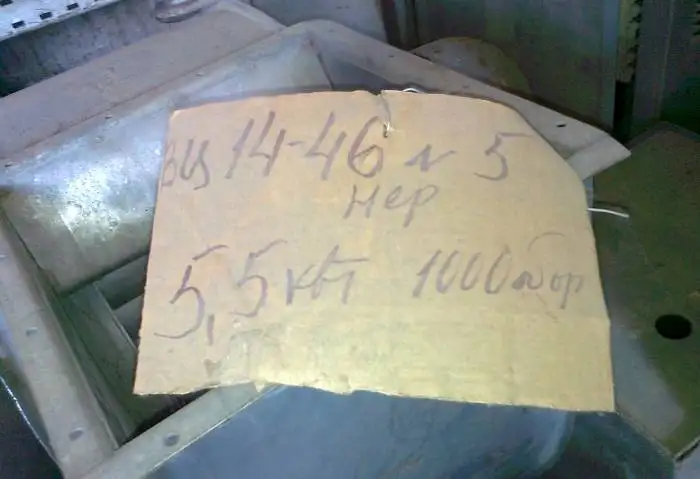 ВЦ 14-46 N 5
нер
5,5 квт 1000 обор